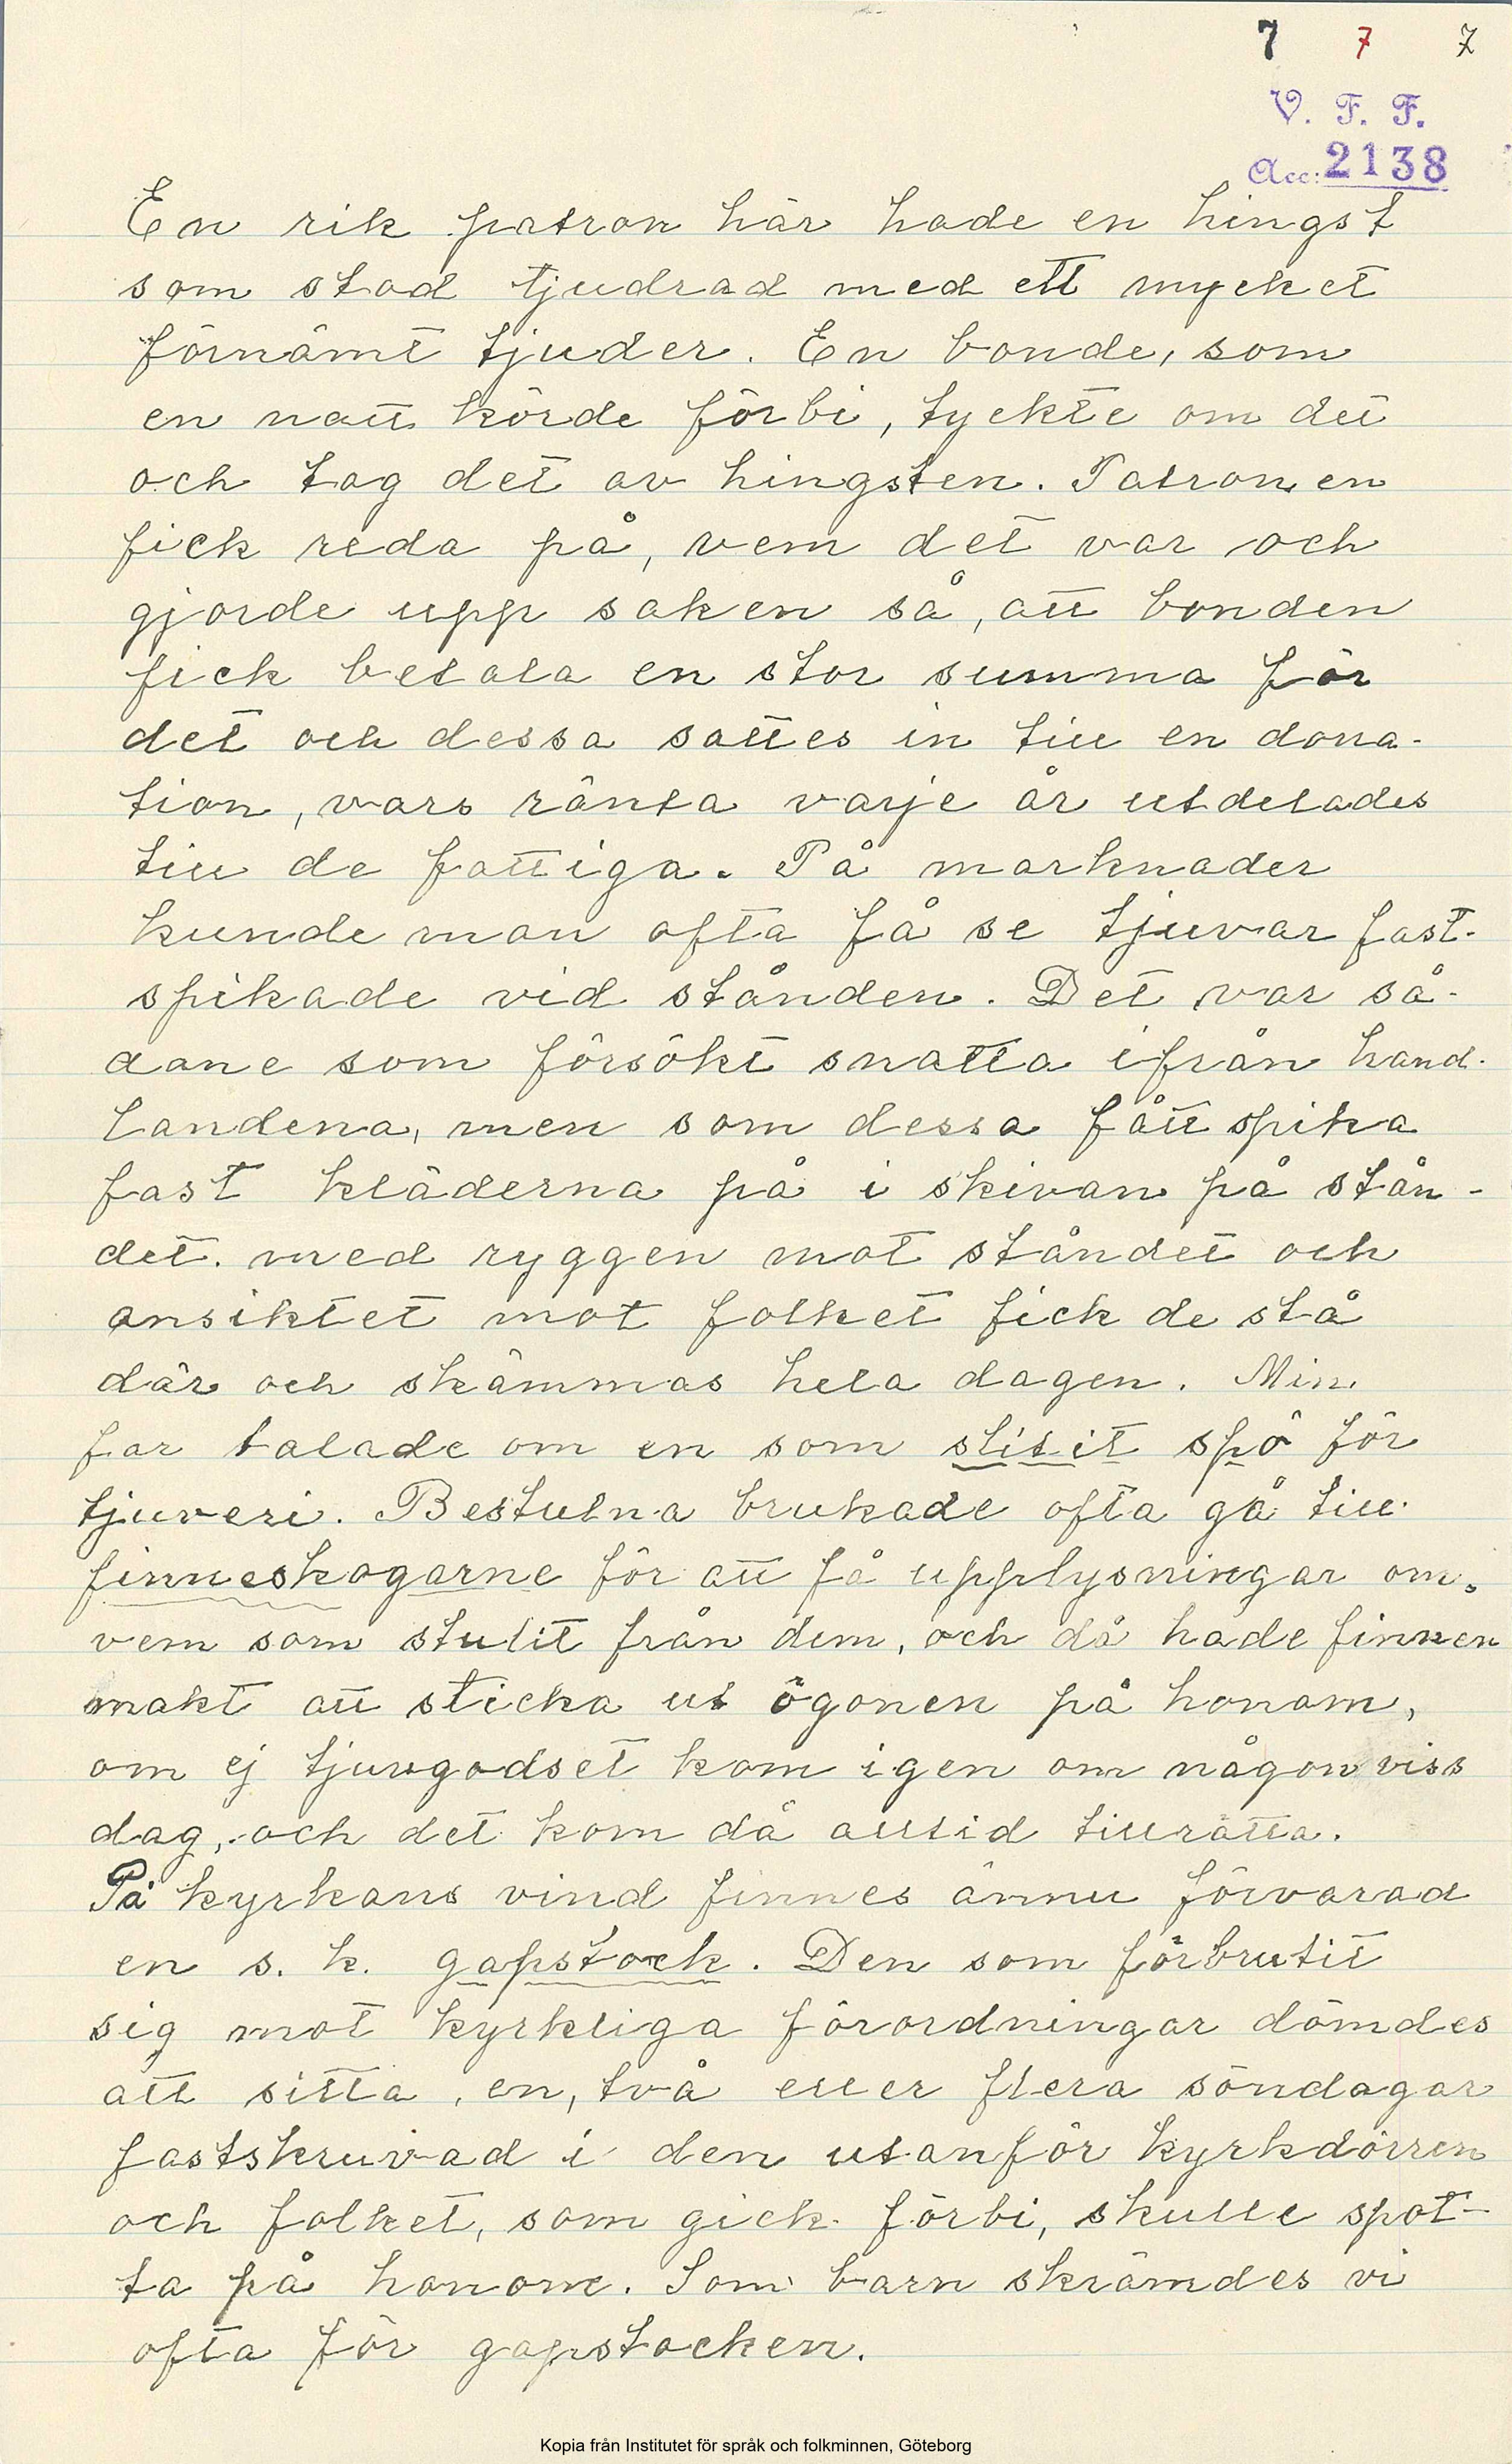 7 7 7
V. F. F.
Acc: 2138
En rik patron här hade en hingst
som stod tjudrad med ett mycket
förnämt tjuder. En bonde, som
en natt körde förbi, tyckte om det
och tog det av hingsten. Patronen
fick reda på, vem det var och
gjorde upp saken så, att bonden
fick betala en stor summa för
det och dessa sattes in till en dona-
tion, vars ränta varje år utdelades
till de fattiga. På marknader
kunde man ofta få se tjuvar fast-
spikade vid stånden. Det var så-
dane som försökt snatta ifrån hand-
landena, men som dessa fått spika
fast kläderna på i skivan på stån-
det. med ryggen mot ståndet och
ansiktet mot folket fick de stå
där och skämmas hela dagen. Min
far talade om en som slitit spö för
tjuveri. Bestulna brukade ofta gå till
finneskogarne för att få upplysningar om,
vem som stulit från dem, och då hade finnen
makt att sticka ut ögonen på honom,
om ej tjuvgodset kom igen om någon viss
dag, och det kom då alltid tillrätta.
På kyrkans vind finnes ännu förvarad
en s. k. gapstock. Den som förbrutit
sig mot kyrkliga förordningar dömdes
att sitta, en, två eller flera söndagar
fastskruvad i den utanför kyrkdörren
och folket, som gick förbi, skulle spot-
ta på honom. Som barn skrämdes vi
ofta för gapstocken.
Kopia från Institutet för språk och folkminnen, Göteborg